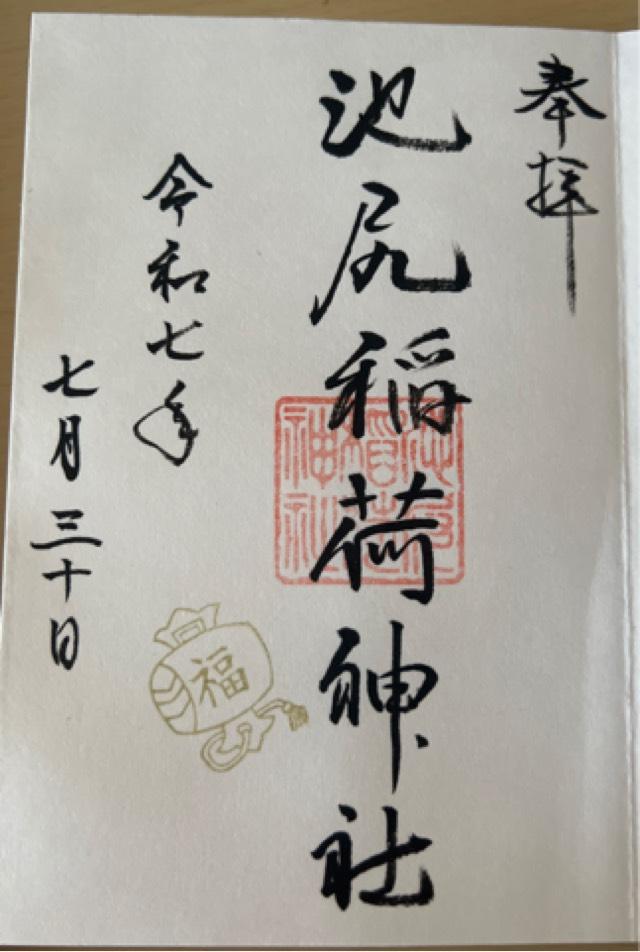 奉拝
池尻稲荷神社
令和七年
七月三十日
福
池尻稲荷神社